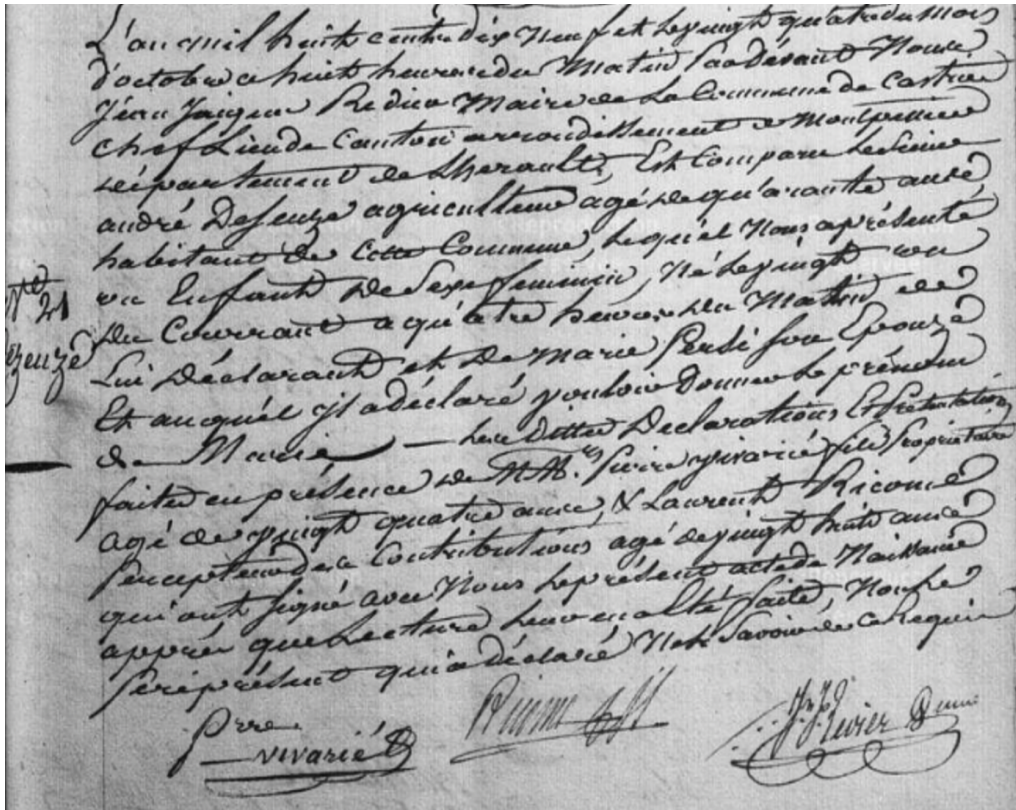 L'an mil huit cents dix neuf et le vingt quatre du mois
d'octobre a huit heures du Matin Pardevant Nous
Jean Jaques Maire de La Commune de Castries
chef Lieu de Canton arrondissement de Montpellier
département de Lherault, Est Comparu le Sieur
andré Deseuze agriculteur agé de quarante ans
habitant de Cette Commune, lequel Nous a présenté
un Enfant de Sexe feminin, Né le vingt un
du Courrant a quatre heures du Matin de
Lui déclarant et de Marie son Epouze
Et auquel il a déclaré vouloir donner le prénom
de Marie — Les Dittes Déclarations Et Présentation
faites en présence de MM.rs Pierre vivarié fils Propriétaire
agé de vingt quatre ans, & Laurent Ricome
Percepteur des Contributions agé de vingt huit ans
qui ont signé avec Nous le présent acte de Naissance
apprés que Lecture leur en a été faite Non le
Pere présent qui a déclaré Ne Savoir de ce Requis
N.e 21
Pierre
vivarié
Ricome